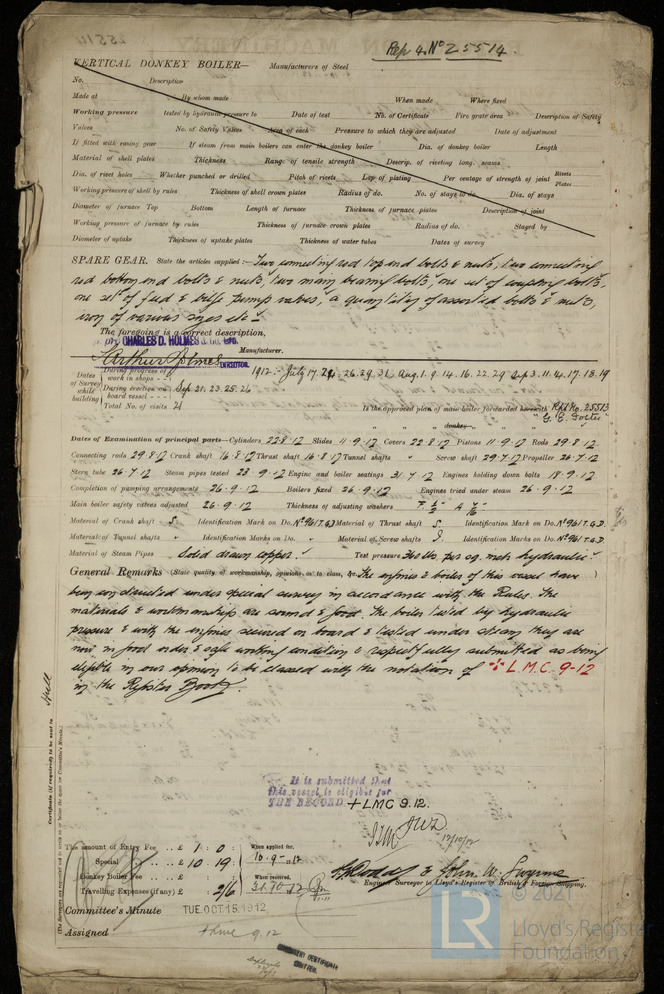 Rep 4. No 25514.
VERTICAL DONKEY BOILER— Manufacturers of Steel
No. Description
Made at By whom made When made Where fixed
Working pressure tested by hydraulic pressure to Date of test No. of Certificate Fire grate area Description of Safety
Valves No. of Safety Valves Area of each Pressure to which they are adjusted Date of adjustment
If fitted with easing gear If steam from main boilers can enter the donkey boiler Dia. of donkey boiler Length
Material of shell plates Thickness Range of tensile strength Descrip. of riveting long. seams
Dia. of rivet holes Whether punched or drilled Pitch of rivets Lap of plating Per centage of strength of joint Rivets Plates
Working pressure of shell by rules Thickness of shell crown plates Radius of do. No. of stays to do. Dia. of stays
Diameter of furnace Top Bottom Length of furnace Thickness of furnace plates Description of joint
Working pressure of furnace by rules Thickness of furnace crown plates Radius of do. Stayed by
Diameter of uptake Thickness of uptake plates Thickness of water tubes Dates of survey
SPARE GEAR. State the articles supplied:— Two connecting rod top end bolts & nuts, two connecting
rod bottom end bolts & nuts, two main bearing bolts, one set of coupling bolts,
one set of feed & bilge pump valves, a quantity of assorted bolts & nuts,
iron of various sizes etc—
The foregoing is a correct description,
CHARLES D. HOLMES & CO. LTD.
Arthur Holmes DIRECTOR. Manufacturer.
Dates of Survey while building
During progress of work in shops 1912. July 17. 24. 26. 29. 31 Aug. 1. 9. 14. 16. 22. 29 Sep 3. 11. 14. 17. 18. 19
During erection on board vessel Sep 21. 23. 25. 26
Total No. of visits 21 Is the approved plan of main boiler forwarded herewith Rpt No. 25513
" " " donkey " "
Dates of Examination of principal parts—Cylinders 22.8.12 Slides 11.9.12 Covers 22.8.12 Pistons 11.9.12 Rods 29.8.12
Connecting rods 29.8.12 Crank shaft 16.8.12 Thrust shaft 16.8.12 Tunnel shafts Screw shaft 29.7.12 Propeller 26.7.12
Stern tube 26.7.12 Steam pipes tested 23.9.12 Engine and boiler seatings 31.7.12 Engines holding down bolts 18.9.12
Completion of pumping arrangements 26.9.12 Boilers fixed 26.9.12 Engines tried under steam 26.9.12
Main boiler safety valves adjusted 26.9.12 Thickness of adjusting washers
Material of Crank shaft S. Identification Mark on Do. No 961 T.G.D Material of Thrust shaft S. Identification Mark on Do. No 961 T.G.D.
Material of Tunnel shafts Identification Marks on Do. Material of Screw shafts Identification Marks on Do. No 961 T.G.D
Material of Steam Pipes Solid drawn copper. Test pressure lbs. per sq. inch hydraulic.
General Remarks (State quality of workmanship, opinions as to class, &c. The engines & boiler of this vessel have
been constructed under special survey in accordance with the Rules. The
materials & workmanship are sound & good. The boiler tested by hydraulic
pressure & with the engines secured on board & tested under steam they are
now in good order & safe working condition & respectfully submitted as being
eligible in our opinion to be classed with the notation of + L.M.C. 9-12
in the Register Book.
Certificate (if required) to be sent to Hull
(The Surveyors are requested not to write on or below the space for Committee's Minute.)
It is submitted that
this vessel is eligible for
THE RECORD + LMC 9.12.
12/10/12
The amount of Entry Fee .. £ 1 : 0 : When applied for,
Special .. .. £ 10 . 19 : 10.9.12
Donkey Boiler Fee .. .. £ When received,
Travelling Expenses (if any) £ 2/6
John W. Gwynne
Engineer Surveyor to Lloyd's Register of British & Foreign Shipping.
Committee's Minute TUE. OCT 15. 1912
Assigned + LMC 9.12
© 2021
LR
Lloyd's Register
Foundation